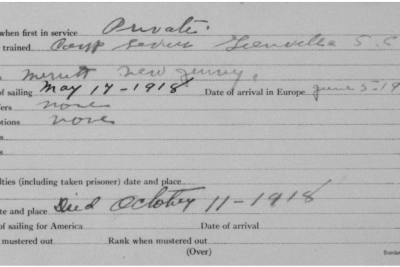 when first in service Private
trained Camp Sevier Greenville S.C
Merritt New Jersey,
of sailing May 17-1918 Date of arrival in Europe June 5-19
fers none
otions none
s
s
lties (including taken prisoner) date and place
ate and place Died October 11-1918
of sailing for America Date of arrival
mustered out Rank when mustered out
(Over)